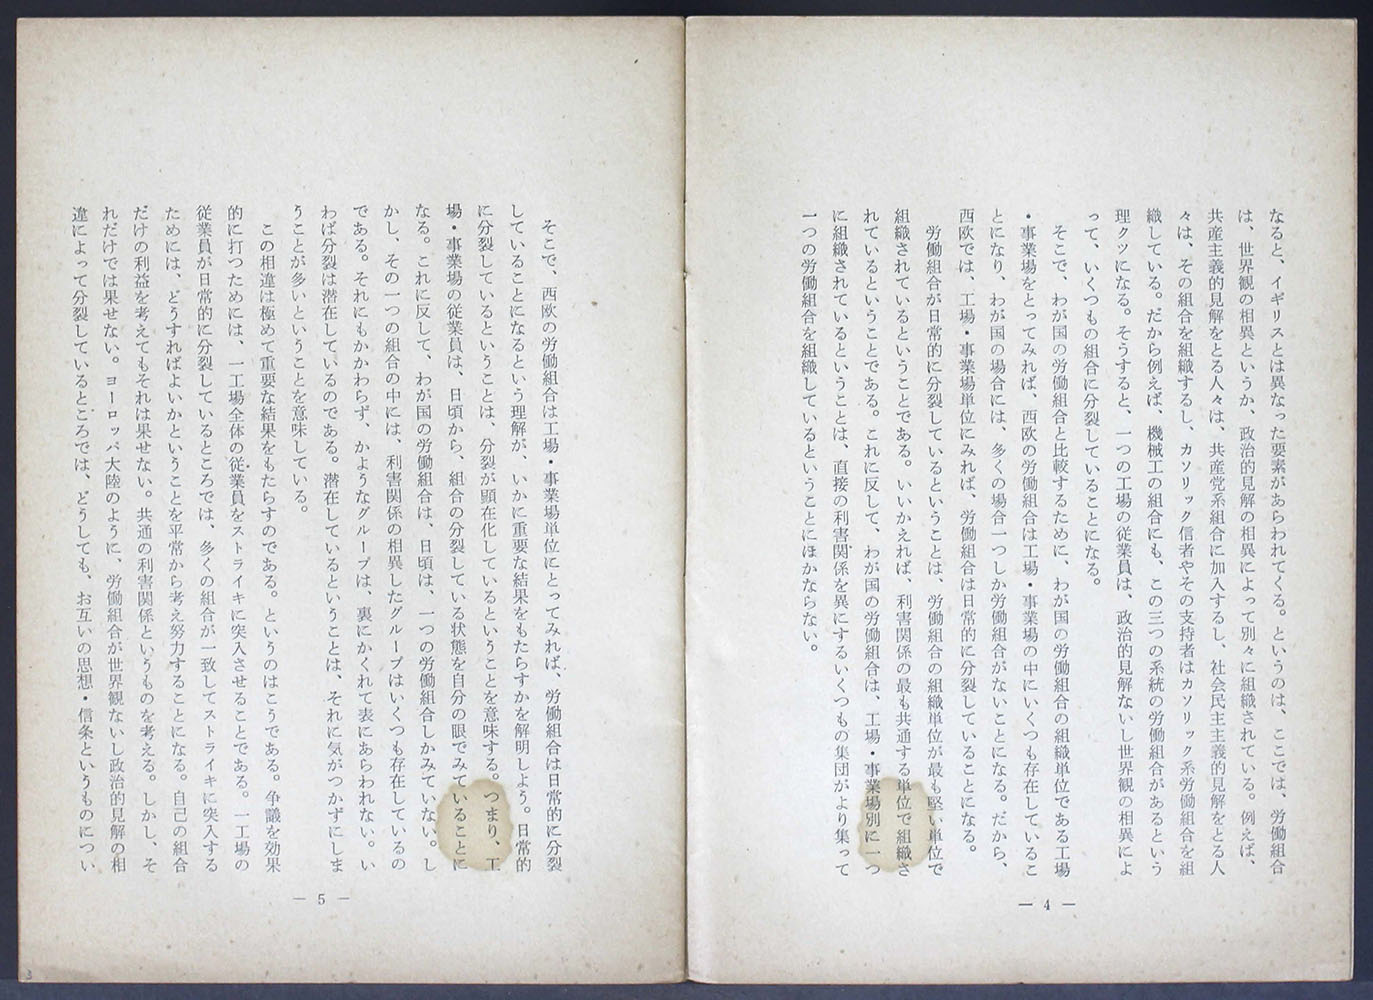 なると、イギリスとは異なった要素があらわれてくる。というのは、ここでは、労働組合
は、世界観の相異というか、政治的見解の相異によって別々に組織されている。例えば、
共産主義的見解をとる人々は、共産党系組合に加入するし、社会民主主義的見解をとる人
々は、その組合を組織するし、カソリック信者やその支持者はカソリック系労働組合を組
織している。だから例えば、機械工の組合にも、この三つの系統の労働組合があるという
理クツになる。そうすると、一つの工場の従業員は、政治的見解ないし世界観の相異によ
って、いくつもの組合に分裂していることになる。
そこで、わが国の労働組合と比較するために、わが国の労働組合の組織単位である工場
・事業場をとってみれば、西欧の労働組合は工場・事業場の中にいくつも存在しているこ
とになり、わが国の場合には、多くの場合一つしか労働組合がないことになる。だから、
西欧では、工場・事業場単位にみれば、労働組合は日常的に分裂していることになる。
労働組合が日常的に分裂しているということは、労働組合の組織単位が最も堅い単位で
組織されているということである。いいかえれば、利害関係の最も共通する単位で組織さ
れているということである。これに反して、わが国の労働組合は、工場・事業場別に一つ
に組織されているということは、直接の利害関係を異にするいくつもの集団がより集って
一つの労働組合を組織しているということにほかならない。
— 4 —
そこで、西欧の労働組合は工場・事業場単位にとってみれば、労働組合は日常的に分裂
していることになるという理解が、いかに重要な結果をもたらすかを解明しよう。日常的
に分裂しているということは、分裂が顕在化しているということを意味する。つまり、工
場・事業場の従業員は、日頃から、組合の分裂している状態を自分の眼でみていることに
なる。これに反して、わが国の労働組合は、日頃は、一つの労働組合しかみていない。し
かし、その一つの組合の中には、利害関係の相異したグループはいくつも存在しているの
である。それにもかかわらず、かようなグループは、裏にかくれて表にあらわれない。い
わば分裂は潜在しているのである。潜在しているということは、それに気がつかずにしま
うことが多いということを意味している。
この相違は極めて重要な結果をもたらすのである。というのはこうである。争議を効果
的に打つためには、一工場全体の従業員をストライキに突入させることである。一工場の
従業員が日常的に分裂しているところでは、多くの組合が一致してストライキに突入する
ためには、どうすればよいかということを平常から考え努力することになる。自己の組合
だけの利益を考えてもそれは果せない。共通の利害関係というものを考える。しかし、そ
れだけでは果せない。ヨーロッパ大陸のように、労働組合が世界観ないし政治的見解の相
違によって分裂しているところでは、どうしても、お互いの思想・信条というものについ
— 5 —
3